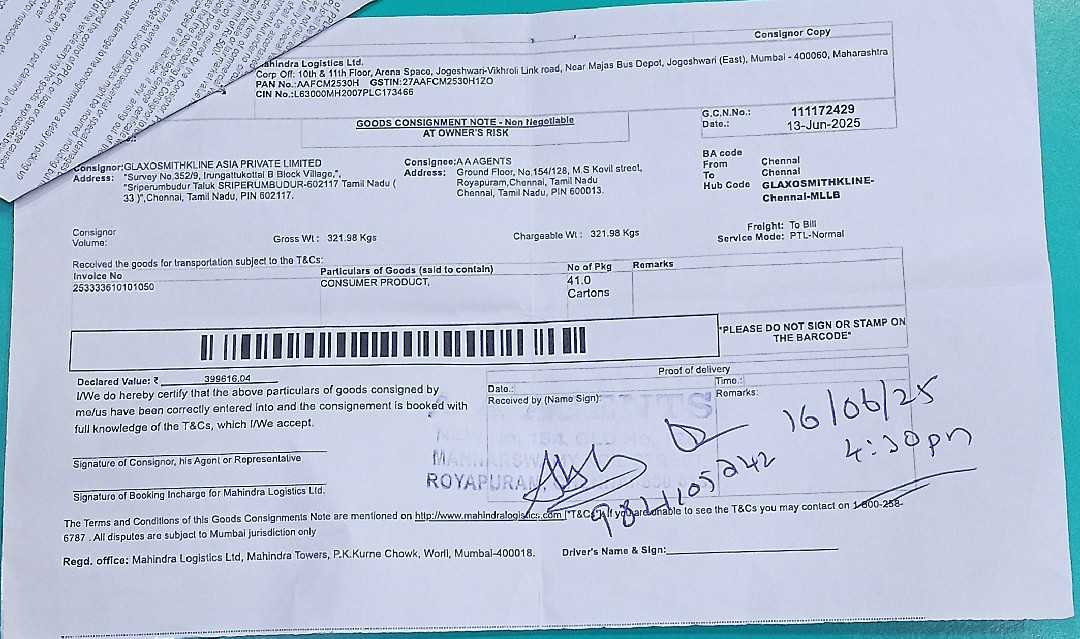 Consignor Copy
Mahindra Logistics Ltd.
Corp Off: 10th & 11th Floor, Arena Space, Jogeshwari-Vikhroli Link road, Near Majas Bus Depot, Jogeshwari (East), Mumbai - 400060, Maharashtra
PAN No.:AAFCM2530H GSTIN:27AAFCM2530H1ZO
CIN No.:L63000MH2007PLC173466
GOODS CONSIGNMENT NOTE - Non Negotiable
AT OWNER'S RISK
G.C.N.No.: 111172429
Date.: 13-Jun-2025
Consignor:GLAXOSMITHKLINE ASIA PRIVATE LIMITED
Address: "Survey No.352/9, Irungattukottai B Block Village,",
"Sriperumbudur Taluk SRIPERUMBUDUR-602117 Tamil Nadu (
33 )",Chennai, Tamil Nadu, PIN 602117.
Consignee:A A AGENTS
Address: Ground Floor, No.154/128, M.S Kovil street,
Royapuram,Chennai, Tamil Nadu
Chennai, Tamil Nadu, PIN 600013.
BA code
From Chennai
To Chennai
Hub Code GLAXOSMITHKLINE-
Chennai-MLLB
Consignor
Volume:
Gross Wt : 321.98 Kgs
Chargeable Wt : 321.98 Kgs
Freight: To Bill
Service Mode: PTL-Normal
Received the goods for transportation subject to the T&Cs:
Invoice No Particulars of Goods (said to contain) No of Pkg Remarks
253333610101050 CONSUMER PRODUCT, 41.0
Cartons
"PLEASE DO NOT SIGN OR STAMP ON
THE BARCODE"
Declared Value: ₹ 399616.04
I/We do hereby certify that the above particulars of goods consigned by
me/us have been correctly entered into and the consignement is booked with
full knowledge of the T&Cs, which I/We accept.
Signature of Consignor, his Agent or Representative
Signature of Booking Incharge for Mahindra Logistics Ltd.
Proof of delivery
Date.: Time.:
Received by (Name Sign): Remarks:
16/06/25
4:30pm
ROYAPURAM,
The Terms and Conditions of this Goods Consignments Note are mentioned on http://www.mahindralogistics.com ("T&Cs"). If you are unable to see the T&Cs you may contact on 1-800-258-
6787 . All disputes are subject to Mumbai jurisdiction only
Regd. office: Mahindra Logistics Ltd, Mahindra Towers, P.K.Kurne Chowk, Worli, Mumbai-400018.
Driver's Name & Sign: